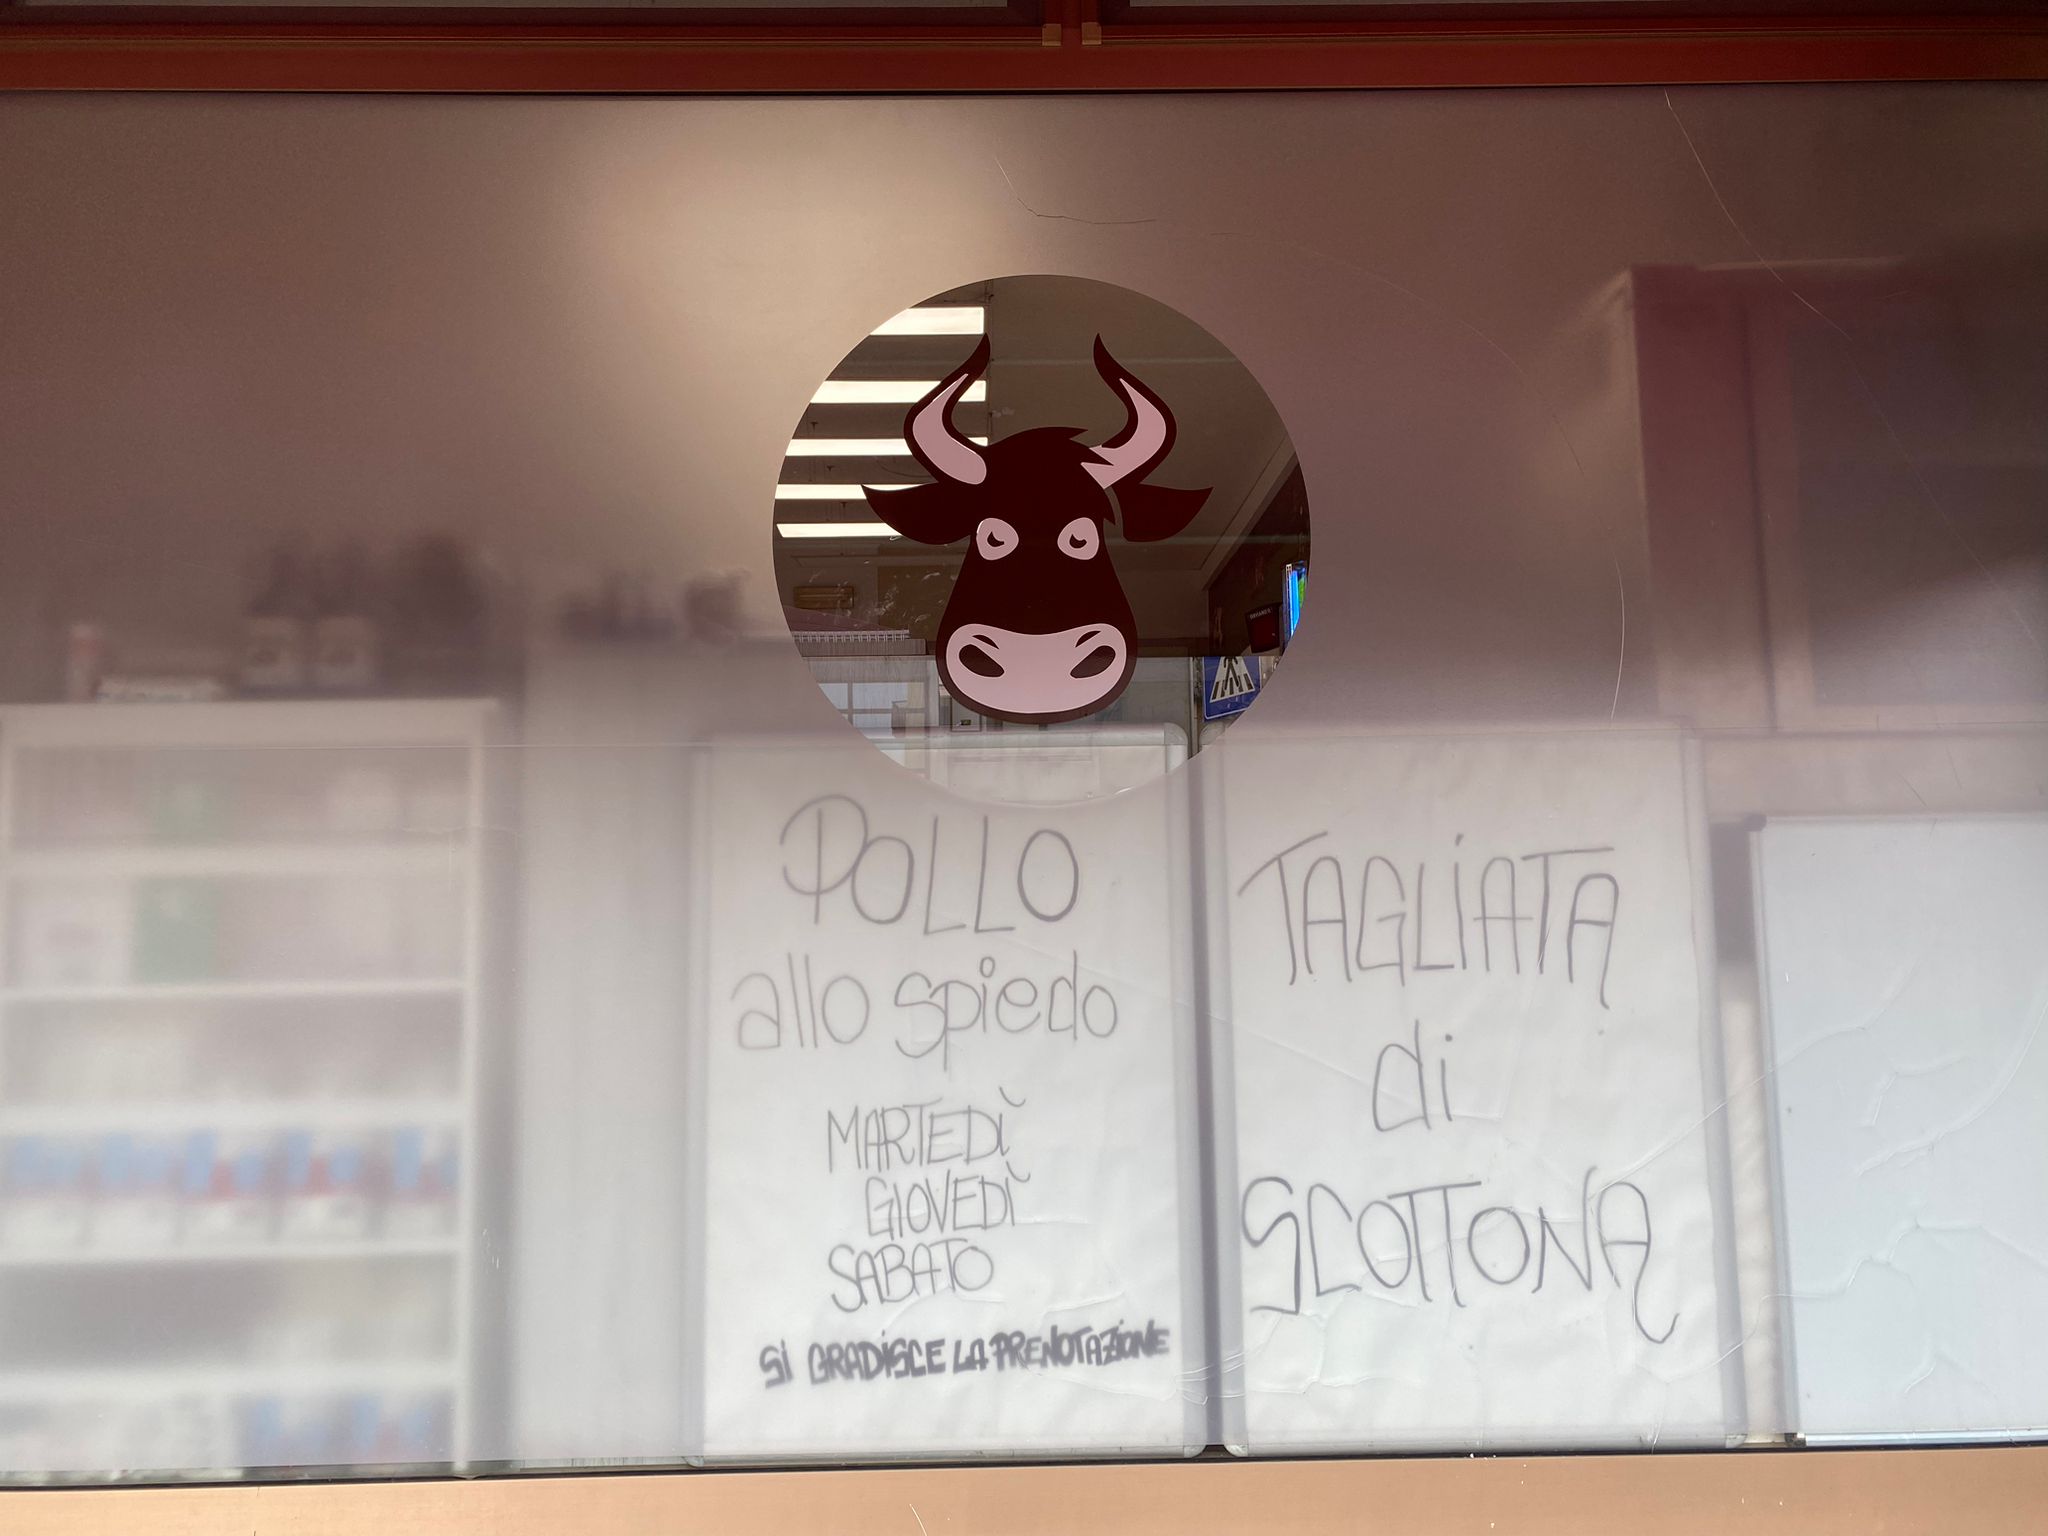 POLLO
allo spiedo
MARTEDÌ
GIOVEDÌ
SABATO
SI GRADISCE LA PRENOTAZIONE
TAGLIATA
di
SCOTTONA